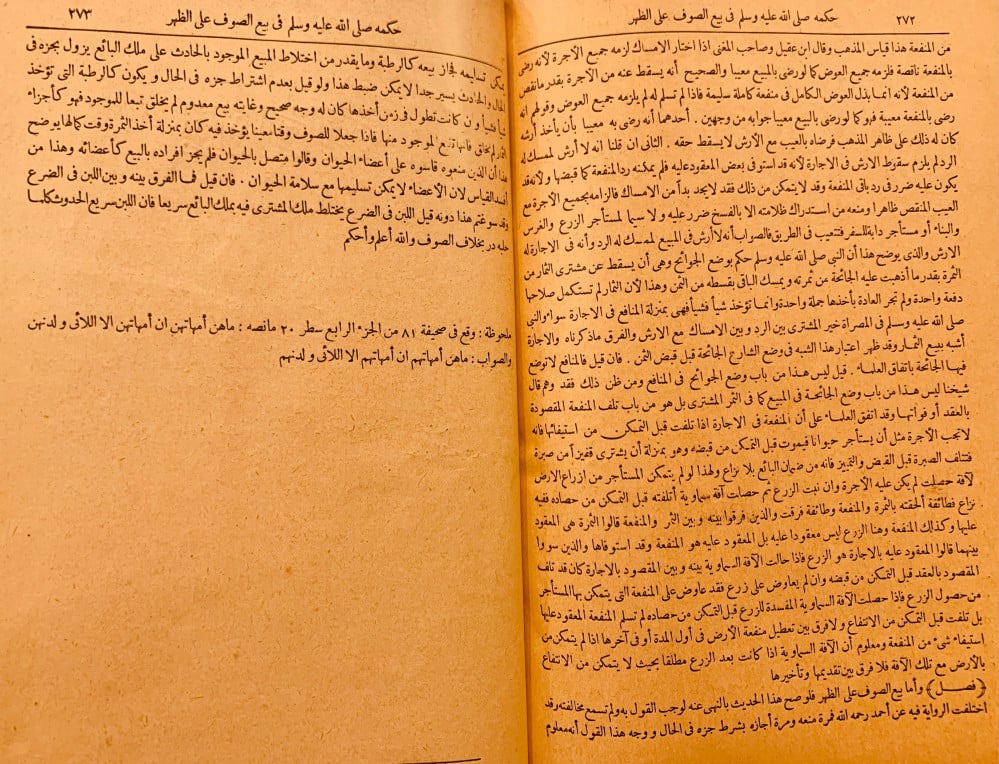 ٢٧٢ حكمه صلى الله عليه وسلم فى بيع الصوف على الظهر
من المنفعة هذا قياس المذهب وقال ابن عقيل وصاحب المغنى اذا اختار الامساك لزمه جميع الاجرة لأنه رضى
بالمنفعة ناقصة فلزمه جميع العوض كما لو رضى بالمبيع معيبا والصحيح أنه يسقط عنه من الاجرة بقدر ما نقص
من المنفعة لأنه انما بذل العوض الكامل فى منفعة كاملة سليمة فاذا لم تسلم له لم يلزمه جميع العوض وقولهم انه
رضى بالمنفعة معيبة فهو كما لو رضى بالبيع معيبا جوابه من وجهين . أحدهما أنه رضى به معيبا بأن يأخذ أرشه
كان له ذلك على ظاهر المذهب فرضاه بالعيب مع الارش لا يسقط حقه . الثانى ان قلنا انه لا أرش لممسك له
الرد لم يلزم سقوط الارش فى الاجارة لأنه قد استوفى بعض المعقود عليه فلم يمكنه رد المنفعة كما قبضها ولأنه قد
يكون عليه ضرر فى رد باقى المنفعة وقد لا يتمكن من ذلك فقد لا يجد بدأ من الامساك فالزامه بجميع الاجرة مع
العيب المنقص ظاهرا ومنعه من استدراك ظلامته الا بالفسخ ضرر عليه ولا سيما لمستأجر الزرع والغرس
والبناء أو مستأجر دابة للسفر فتتعيب فى الطريق فالصواب أنه لا أرش فى المبيع لممسك له الرد وأنه فى الاجارة له
الارش والذى يوضح هذا أن النبي صلى الله عليه وسلم حكم بوضع الجوائح وهى أن يسقط عن مشترى الثمار من
الثمرة بقدر ما أذهبت عليه الجائحة من ثمرته ويمسك الباقى بقسطه من الثمن وهذا لأن الثمار لم تستكمل صلاحها
دفعة واحدة ولم تجر العادة بأخذها جملة واحدة وانما تؤخذ شيأ فشيأ فهى بمنزلة المنافع فى الاجارة سواء والنبي
صلى الله عليه وسلم فى المصراة خير المشترى بين الرد وبين الامساك مع الارش والفرق ما ذكرناه والاجارة
أشبه ببيع الثمار وقد ظهر اعتبار هذا الشبه فى وضع الشارع الجائحة قبل قبض الثمن . فان قيل فالمنافع لا توضع
فيها الجائحة باتفاق العلماء . قيل ليس هذا من باب وضع الجوائح فى المنافع ومن ظن ذلك فقد وهم قال
شيخنا ليس هذا من باب وضع الجائحة فى المبيع كما فى الثمر المشترى بل هو من باب تلف المنفعة المقصودة
بالعقد أو فواتها وقد اتفق العلماء على أن المنفعة فى الاجارة اذا تلفت قبل التمكن من استيفائها فانه
لا تجب الاجرة مثل أن يستأجر حيوانا فيموت قبل التمكن من قبضه وهو بمنزلة أن يشترى قفيزاً من صبرة
فتتلف الصبرة قبل القبض والتمييز فانه من ضمان البائع بلا نزاع ولهذا لو لم يتمكن المستأجر من ازراع الارض
لآفة حصلت لم يكن عليه الاجرة وان نبت الزرع ثم حصلت آفة سماوية أتلفته قبل التمكن من حصاده ففيه
نزاع فطائفة ألحقته بالثمرة والمنفعة وطائفة فرقت والذين فرقوا بينه وبين الثمر والمنفعة قالوا الثمرة هى المعقود
عليها وكذلك المنفعة وهنا الزرع ليس معقودا عليه بل المعقود عليه هو المنفعة وقد استوفاها والذين سووا
بينهما قالوا المعقود عليه بالاجارة هو الزرع فاذا حالت الآفة السماوية بينه وبين المقصود بالاجارة كان قد تلف
المقصود بالعقد قبل التمكن من قبضه وان لم يعاوض على زرع فقد عاوض على المنفعة التى يتمكن بها المستأجر
من حصول الزرع فاذا حصلت الآفة السماوية المفسدة للزرع قبل التمكن من حصاده لم تسلم المنفعة المعقود عليها
بل تلفت قبل التمكن من الانتفاع ولا فرق بين تعطيل منفعة الأرض فى أول المدة أو فى آخرها اذا لم يتمكن من
استيفاء شىء من المنفعة ومعلوم أن الآفة السماوية اذا كانت بعد الزرع مطلقا بحيث لا يتمكن من الانتفاع
بالأرض مع تلك الآفة فلا فرق بين تقديمها وتأخيرها
(فصل) وأما بيع الصوف على الظهر فلو صح هذا الحديث بالنهى عنه لوجب القول به ولم تسمع مخالفته وقد
اختلفت الرواية فيه عن أحمد رحمه الله فمرة منعه ومرة أجازه بشرط جزه فى الحال ووجه هذا القول أنه معلوم
حكمه صلى الله عليه وسلم فى بيع الصوف على الظهر ٢٧٣
يمكن تسليمه فجاز بيعه كالرطبة وما يقدر من اختلاط المبيع الموجود بالحادث على ملك البائع يزول بجزه فى
الحال والحادث يسير جدا لا يمكن ضبط هذا ولو قيل بعدم اشتراط جزه فى الحال ويكون كالرطبة التى تؤخذ
شيأ فشيأ وان كانت تطول فى زمن أخذها كان له وجه صحيح وغايته بيع معدوم لم يخلق تبعا للموجود فهو كأجزاء
الثمار لم تخلق فانها تتبع الموجود منها فاذا جعلا للصوف وقتا معينا يؤخذ فيه كان بمنزلة أخذ الثمرة وقت كمالها يوضح
هذا أن الذين منعوه قاسوه على أعضاء الحيوان وقالوا متصل بالحيوان فلم يجز افراده بالبيع كأعضائه وهذا من
أفسد القياس لان الأعضاء لا يمكن تسليمها مع سلامة الحيوان . فان قيل فما الفرق بينه وبين اللبن فى الضرع
وقد سوغتم هذا دونه قيل اللبن فى الضرع يختلط ملك المشترى فيه بملك البائع سريعا فان اللبن سريع الحدوث كلما
حلبه در بخلاف الصوف والله أعلم وأحكم
ملحوظة : وقع فى صحيفة ٨١ من الجزء الرابع سطر ٢٠ ما نصه : ماهن أمهاتهن ان أمهاتهن الا اللائى ولدنهن
والصواب : ماهن أمهاتهم ان أمهاتهم الا اللائى ولدنهم